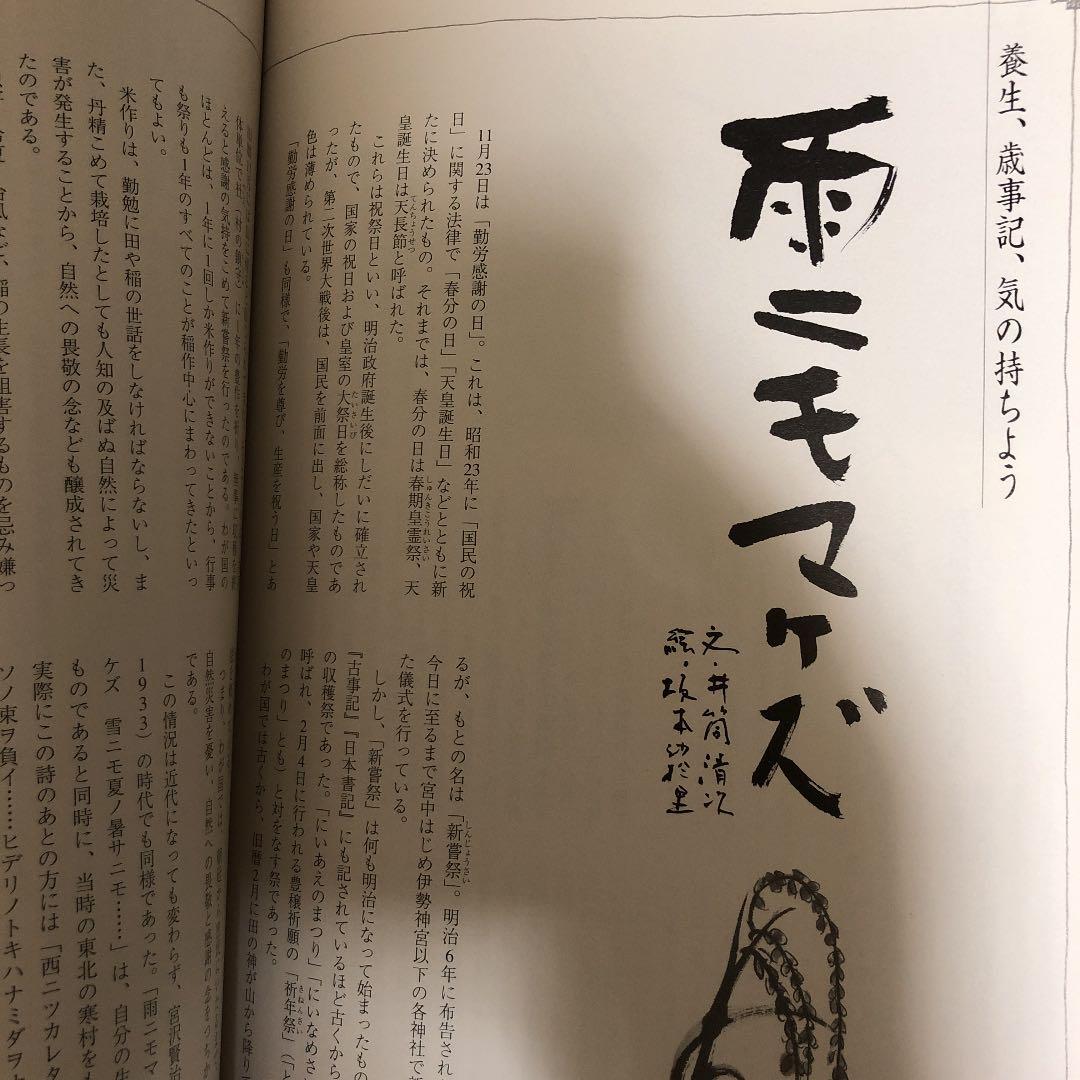 養生、歳事記、気の持ちよう
雨ニモマケズ
文・井筒清次
絵・坂本
11月23日は「勤労感謝の日」。これは、昭和23年に「国民の祝
日」に関する法律で「春分の日」「天皇誕生日」などとともに新
たに決められたもの。それまでは、春分の日は春期皇霊祭、天
皇誕生日は天長節と呼ばれた。
これらは祝祭日といい、明治政府誕生後にしだいに確立され
たもので、国家の祝日および皇室の大祭日を総称したものであ
ったが、第二次世界大戦後は、国民を前面に出し、国家や天皇
色は薄められている。
「勤労感謝の日」も同様で、「勤労を尊び、生産を祝う日」とあ
るが、もとの名は「新嘗祭」。明治6年に布告され
今日に至るまで宮中はじめ伊勢神宮以下の各神社で
た儀式を行っている。
しかし、「新嘗祭」は何も明治になって始まったもの
『古事記』『日本書記』にも記されているほど古くから
の収穫祭であった。「にいあえのまつり」「にいなめさ
呼ばれ、2月4日に行われる豊穣祈願の「祈年祭」(「と
のまつり」とも)と対をなす祭であった。
わが国では古くから、旧暦2月に田の神が山から降り
えると感謝の気持をこめて新嘗祭を行ったのである。わが国の
ほとんどは、1年に1回しか米作りができないことから、行事
も祭りも1年のすべてのことが稲作中心にまわってきたといっ
てもよい。
米作りは、勤勉に田や稲の世話をしなければならないし、ま
た、丹精こめて栽培したとしても人知の及ばぬ自然によって災
害が発生することから、自然への畏敬の念なども醸成されてき
たのである。
稲の生長を阻害するものを忌み嫌っ
自然災害を憂い、自然への畏敬と感謝の念を
である。
この情況は近代になっても変わらず、宮沢賢治
1933)の時代でも同様であった。「雨ニモマ
ケズ 雪ニモ夏ノ暑サニモ……」は、自分の生
ものであると同時に、当時の東北の寒村をも
実際にこの詩のあとの方には「西ニツカレタ
ソノ束ヲ負イ……ヒデリノトキハナミダヲ